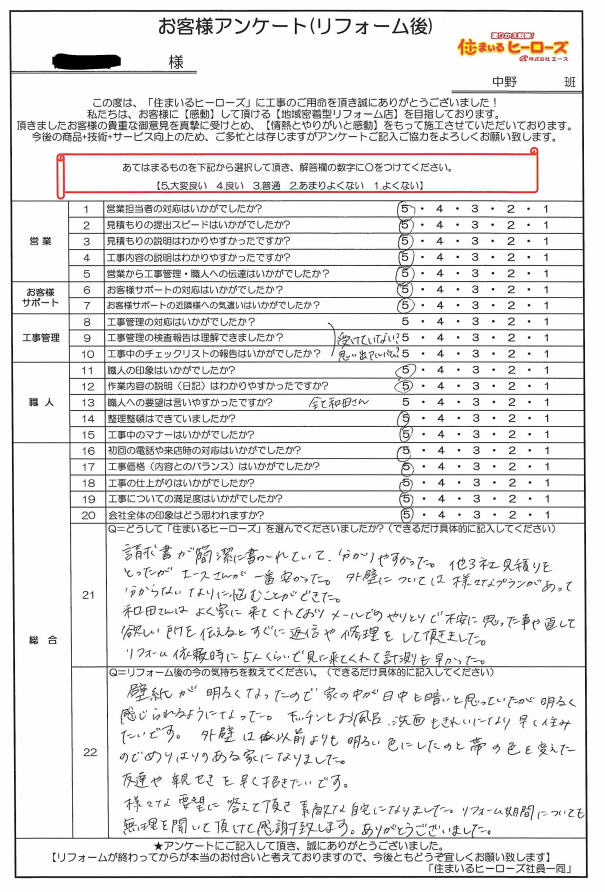 お客様アンケート(リフォーム後)
様
塗りかえ戦隊!
住まいるヒーローズ
株式会社エース
中野 班
この度は、「住まいるヒーローズ」に工事のご用命を頂き誠にありがとうございました!
私たちは、お客様に【感動】して頂ける【地域密着型リフォーム店】を目指しております。
頂きましたお客様の貴重な御意見を真摯に受けとめ、【情熱とやりがいと感動】をもって施工させていただいております。
今後の商品+技術+サービス向上のため、ご多忙とは存じますがアンケートご記入ご協力をよろしくお願い致します。
あてはまるものを下記から選択して頂き、解答欄の数字に○をつけてください。
【5.大変良い 4.良い 3.普通 2.あまりよくない 1.よくない】
営業
1 営業担当者の対応はいかがでしたか? 5・4・3・2・1
2 見積もりの提出スピードはいかがでしたか? 5・4・3・2・1
3 見積もりの説明はわかりやすかったですか? 5・4・3・2・1
4 工事内容の説明はわかりやすかったですか? 5・4・3・2・1
5 営業から工事管理・職人への伝達はいかがでしたか? 5・4・3・2・1
お客様
サポート
6 お客様サポートの対応はいかがでしたか? 5・4・3・2・1
7 お客様サポートの近隣様への気遣いはいかがでしたか? 5・4・3・2・1
工事管理
8 工事管理の対応はいかがでしたか? 5・4・3・2・1
9 工事管理の検査報告は理解できましたか? 受けていない? 5・4・3・2・1
10 工事中のチェックリストの報告はいかがでしたか? 思い出せない 5・4・3・2・1
職人
11 職人の印象はいかがでしたか? 5・4・3・2・1
12 作業内容の説明(日記)はわかりやすかったですか? 5・4・3・2・1
13 職人への要望は言いやすかったですか? 全て和田さん 5・4・3・2・1
14 整理整頓はできていましたか? 5・4・3・2・1
15 工事中のマナーはいかがでしたか? 5・4・3・2・1
総合
16 初回の電話や来店時の対応はいかがでしたか? 5・4・3・2・1
17 工事価格(内容とのバランス)はいかがでしたか? 5・4・3・2・1
18 工事の仕上がりはいかがでしたか? 5・4・3・2・1
19 工事についての満足度はいかがでしたか? 5・4・3・2・1
20 会社全体の印象はどう思われますか? 5・4・3・2・1
21
Q=どうして「住まいるヒーローズ」を選んでくださいましたか?(できるだけ具体的に記入してください)
請求書が簡潔に書かれていて、分かりやすかった。他3社見積りを
とったがエースさんが一番安かった。外壁については様々なプランがあって
分からないなりに悩むことができた。
和田さんはよく家に来てくれており メールでのやりとりで不安に思った事や直して
欲しい所を伝えるとすぐに返信や修理をして頂きました。
リフォーム依頼時に5人くらいで見に来てくれて計測も早かった。
22
Q=リフォーム後の今の気持ちを教えてください。(できるだけ具体的に記入してください)
壁紙が明るくなったので家の中が日中も暗いと思っていたが明るく
感じられるようになった。キッチンとお風呂、洗面もきれいになり早く住み
たいです。外壁は 以前よりも明るい色にしたのと帯の色を変えた
のでめりはりのある家になりました。
友達や親せきを早く招きたいです。
様々な要望に答えて頂き素敵な自宅になりました。リフォーム期間についても
無理を聞いて頂けて感謝致します。ありがとうございました。
★アンケートにご記入して頂き、誠にありがとうございました。
【リフォームが終わってからが本当のお付合いと考えておりますので、今後ともどうぞ宜しくお願い致します】
「住まいるヒーローズ社員一同」